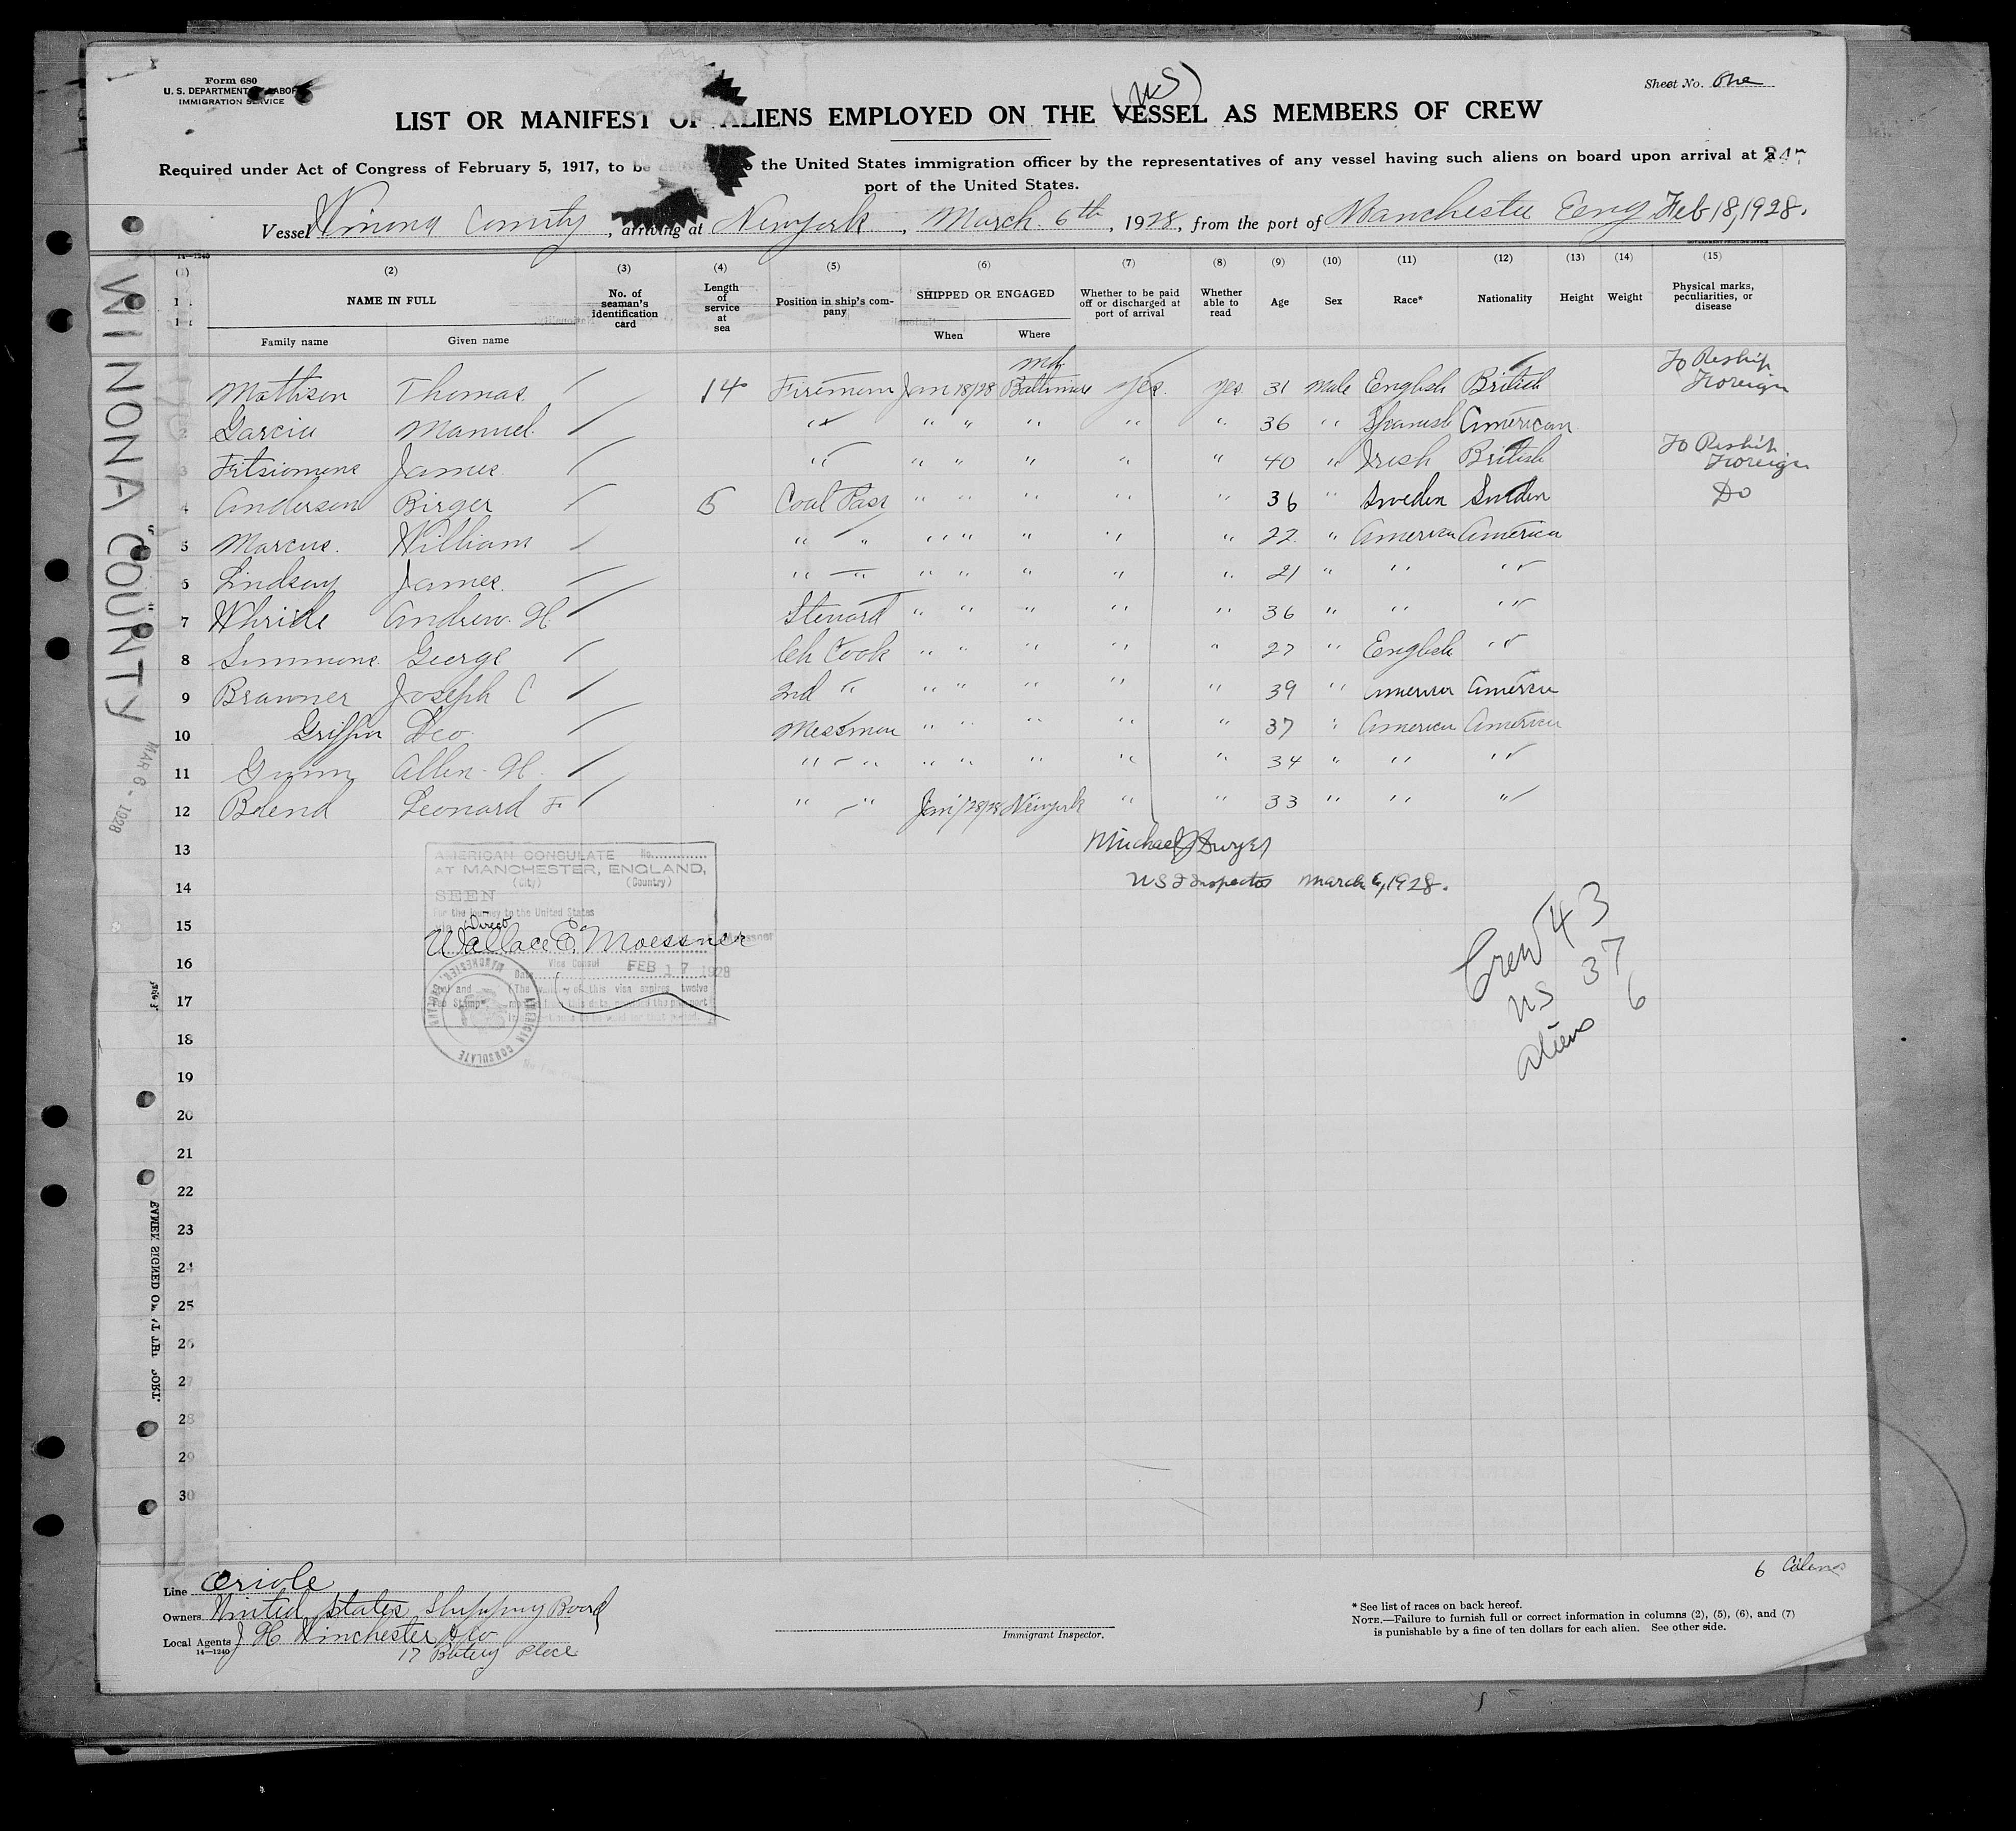 Form 680
U. S. DEPARTMENT OF LABOR
IMMIGRATION SERVICE
Sheet No. One
(US)
LIST OR MANIFEST OF ALIENS EMPLOYED ON THE VESSEL AS MEMBERS OF CREW
Required under Act of Congress of February 5, 1917, to be the United States immigration officer by the representatives of any vessel having such aliens on board upon arrival at a
port of the United States.
Vessel Winona County, arriving at Newyork, March 6th, 1928, from the port of Manchester Eng Feb 18, 1928.
(2) (3) (4) (5) (6) (7) (8) (9) (10) (11) (12) (13) (14) (15)
NAME IN FULL No. of seaman's identification card Length of service at sea Position in ship's company SHIPPED OR ENGAGED Whether to be paid off or discharged at port of arrival Whether able to read Age Sex Race* Nationality Height Weight Physical marks, peculiarities, or disease
Family name Given name When Where
Mattison Thomas / 14 Firemen Jan 18/28 Baltimore Md yes. yes 31 Male English British To Reship Foreign
2 Garcia Manuel / " " " " " " 36 " Spanish American
3 Fitsiomens James / " " " " " " 40 " Irish British To Reship Foreign
4 Anderson Birger / 5 Coal Pass " " " " " 36 " Sweden Sweden Do
5 Marcus. William / " " " " " " " 22 " America America
6 Lindsay James. / " " " " " " " 21 " " "
7 Whride Andrew. H. / Steward " " " " " 36 " " "
8 Simmons George / Ch Cook " " " " " 27 " English "
9 Brawner Joseph C / 2nd " " " " " " 39 " America America
10 Griffin Leo. / Messman " " " " " 37 " America America
11 Gunn Allen. H. / " " " " " " " 34 " " "
12 Blend Leonard F / " " Jan/28/28 Newyork " " 33 " " "
13 Michael J Dwyer
14 US I Inspector March 6, 1928.
15
16
17
18
19
20
21
22
23
24
25
26
27
28
29
30
AMERICAN CONSULATE No.
AT MANCHESTER, ENGLAND,
(City) (Country)
SEEN
For the journey to the United States
Direct
Wallace E. Moessner
Vice Consul
Date FEB 17 1928
(The validity of this visa expires twelve
AMERICAN CONSULATE
Crew 43
US 37
Aliens 6
WINONA "COUNTY"
MAR 6 - 1928
6 Aliens
Line Oriole
Owners United States Shipping Board
Local Agents J H Winchester & Co
17 Battery Place
14—1240
Immigrant Inspector.
* See list of races on back hereof.
NOTE.—Failure to furnish full or correct information in columns (2), (5), (6), and (7)
is punishable by a fine of ten dollars for each alien. See other side.